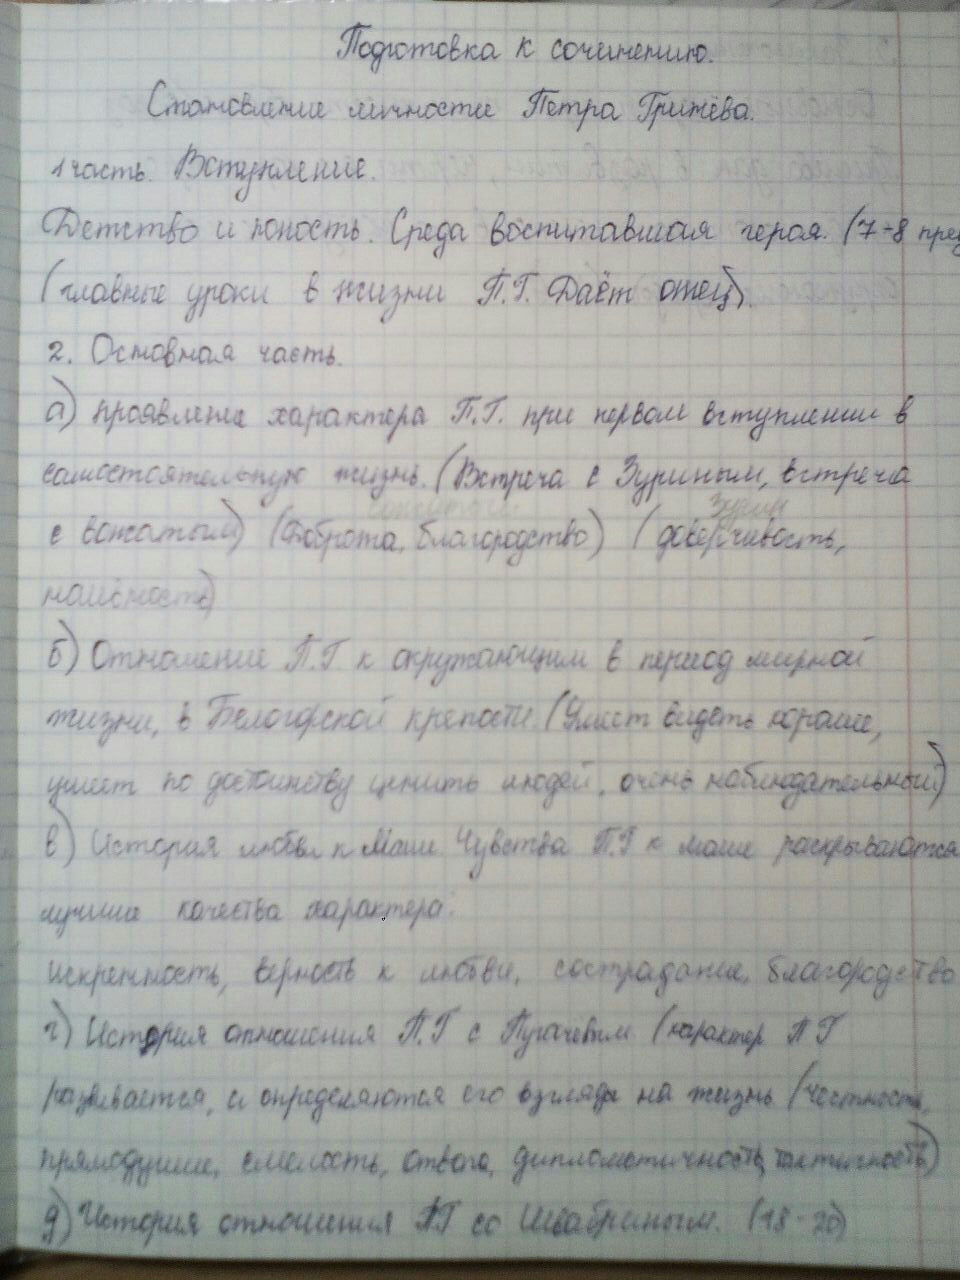 Подготовка к сочинению.
Становление личности Петра Гринёва.
1 часть. Вступление.
Детство и юность. Среда воспитавшая героя. (7-8 пред
(главные уроки в жизни П.Г. Даёт отец).
2. Основная часть.
а) проявление характера П.Г. при первом вступлении в
самостоятельную жизнь. (Встреча с Зуриным, встреча
вожатый Зурин
с вожатым) (Доброта, благородство) (доверчивость,
наивность)
б) Отношение П.Г. к окружающим в период мирной
жизни, в Белогорской крепости. (Умеет видеть хорошее,
умеет по достоинству ценить людей, очень наблюдательный)
в) История любви к Маше. Чувства П.Г к маше раскрываются
лучшие качества характера:
искренность, верность к любви, сострадание, благородство
г) История отношения П.Г с Пугачёвым. (характер П Г
развивается, и определяются его взгляды на жизнь (честность,
прямодушие, смелость, отвага, дипломатичность, тактичность)
д) История отношения ПГ со Швабриным. (18-20)